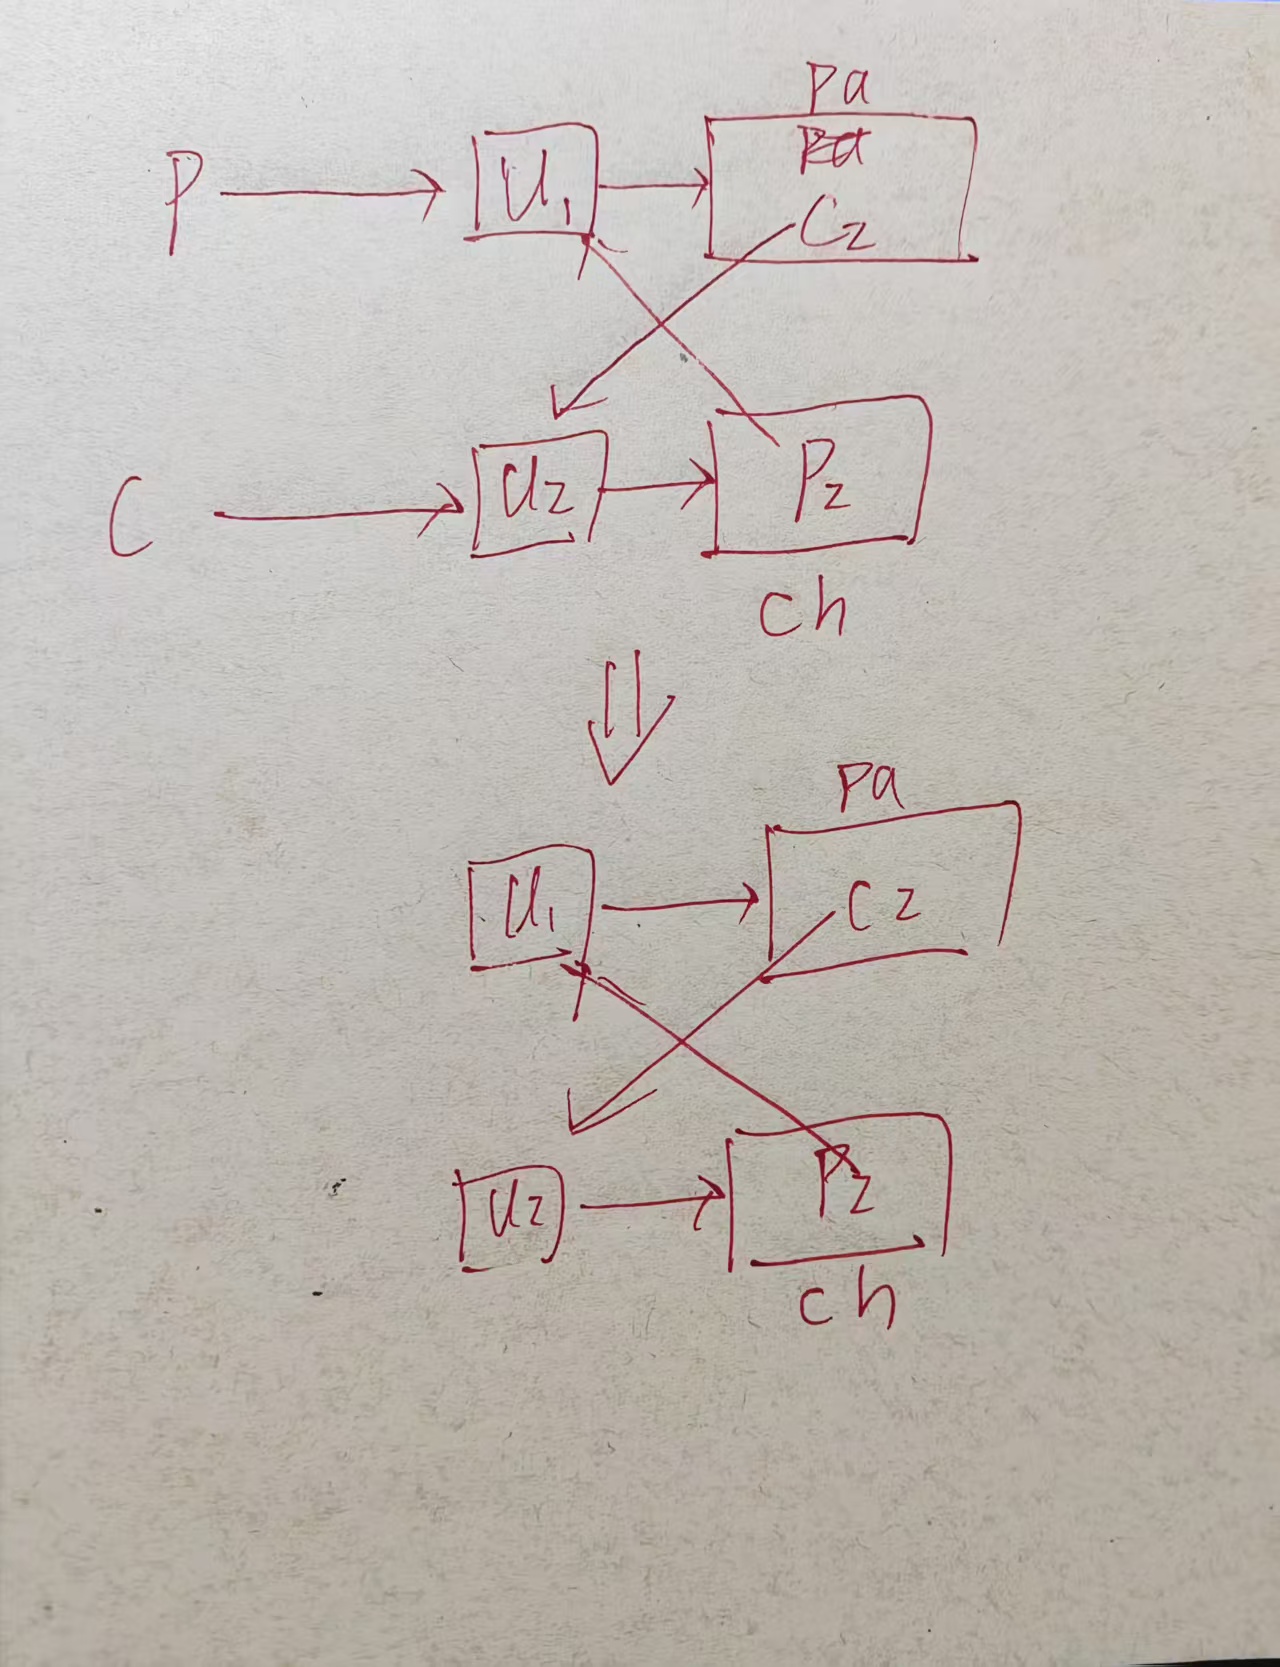 Pa
P U1 C2
C U2 P2
ch
Pa
U1 C2
U2 P2
ch